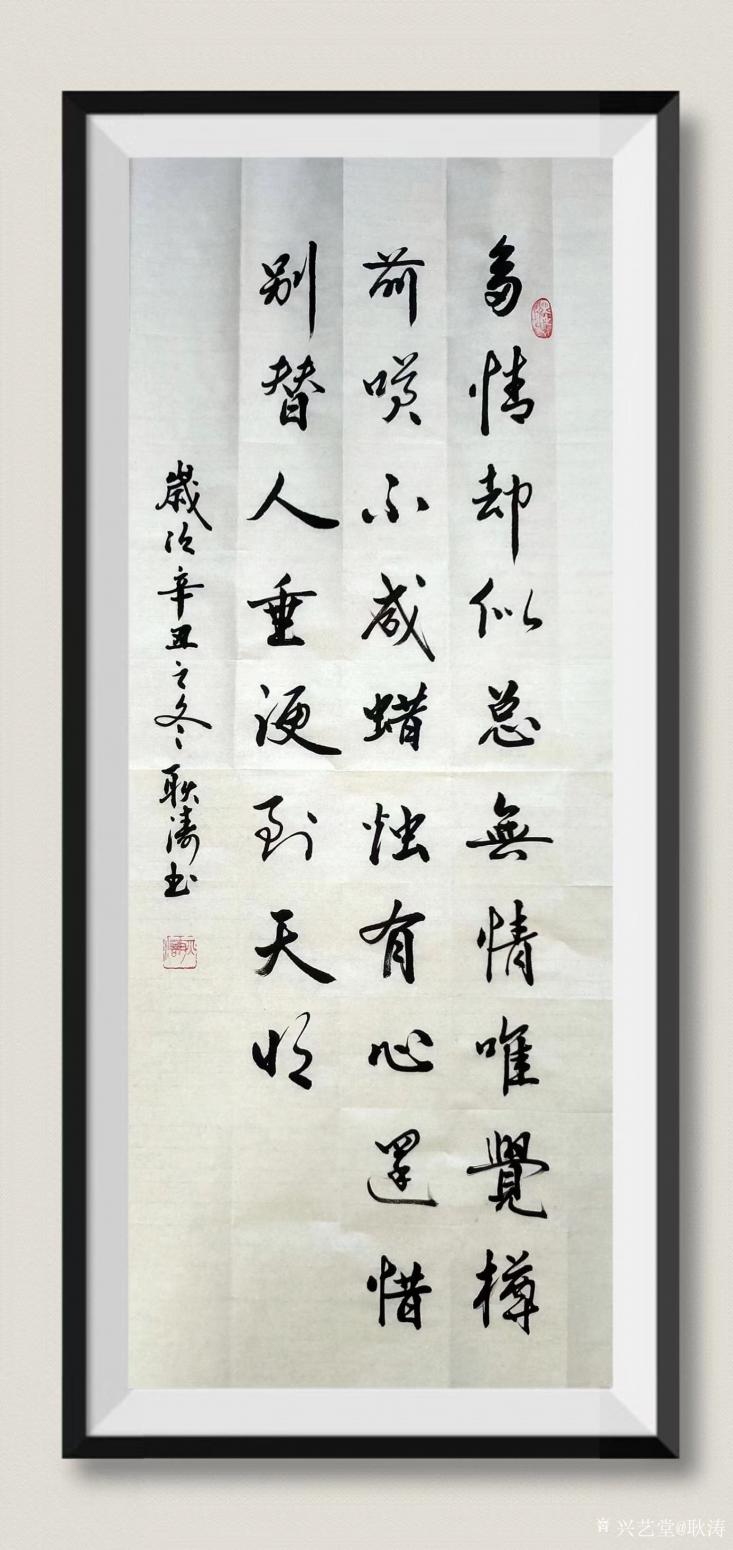 多情却似总無情唯覺樽
前咲不成蜡烛有心還惜
别替人垂泪到天明
歲次辛丑之冬耿濤书
兴艺堂@耿涛